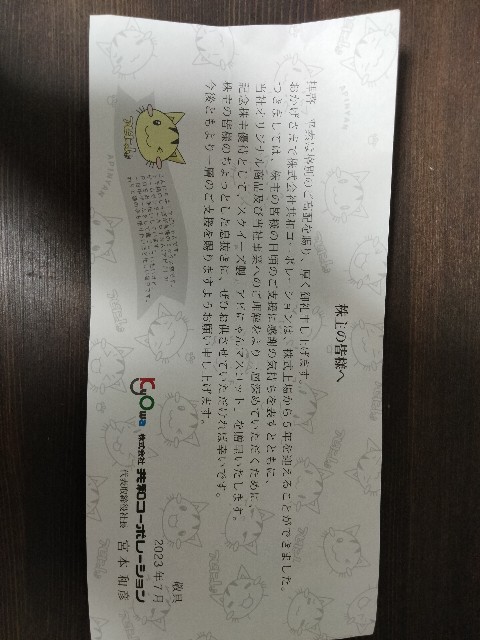 株主の皆様へ
拝啓 平素は格別のご高配を賜り、厚く御礼申し上げます。
おかげさまで株式会社共和コーポレーションは、株式上場から5年を迎えることができました。
つきましては、株主の皆様の日頃のご支援に感謝の気持ちを表すとともに、
当社オリジナル商品及び当社事業へのご理解をより一層深めていただくために、
記念株主優待として、「スクイーズ製 アピにゃんマスコット」を贈呈いたします。
株主の皆様のちょっとした息抜きに、ぜひお供させていただければ幸いです。
今後ともより一層のご支援を賜りますようお願い申し上げます。
敬具
2023年7月
Kyowa
株式会社 共和コーポレーション
代表取締役社長 宮本 和彦
アピにゃん
APINYAN